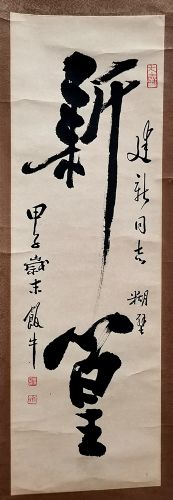 建新同志 糊壁
新篁
甲子歲末 飯牛